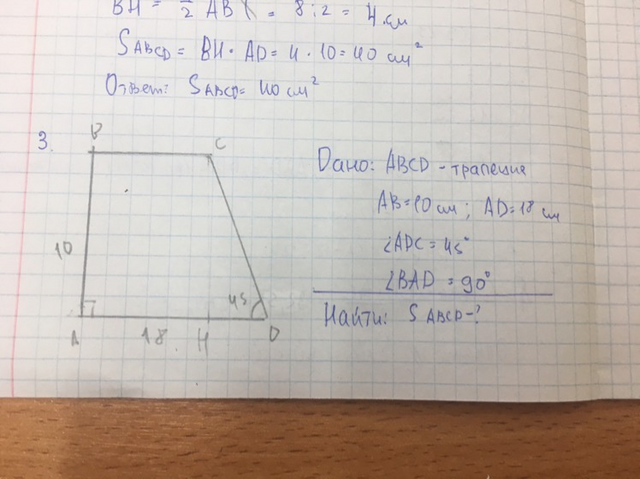 BH = 1/2 AB = 8:2 = 4 см
S ABCD = BH · AD = 4 · 10 = 40 см²
Ответ: S ABCD = 40 см²
3.
B
C
10
45
A
18
H
D
Дано: ABCD - трапеция
AB = 10 см ; AD = 18 см
∠ADC = 45°
∠BAD = 90°
Найти: S ABCD - ?